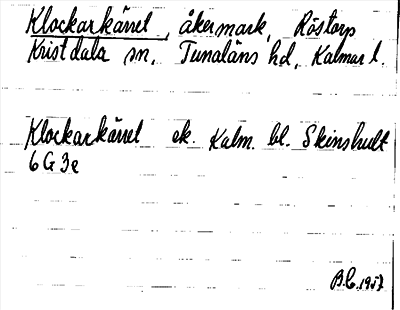 Klockarkärret, åkermark, Röstorp
Kristdala sn, Tunaläns hd, Kalmar l.
Klockarkärret ek. Kalm. bl. Skinshult
6 G 3e